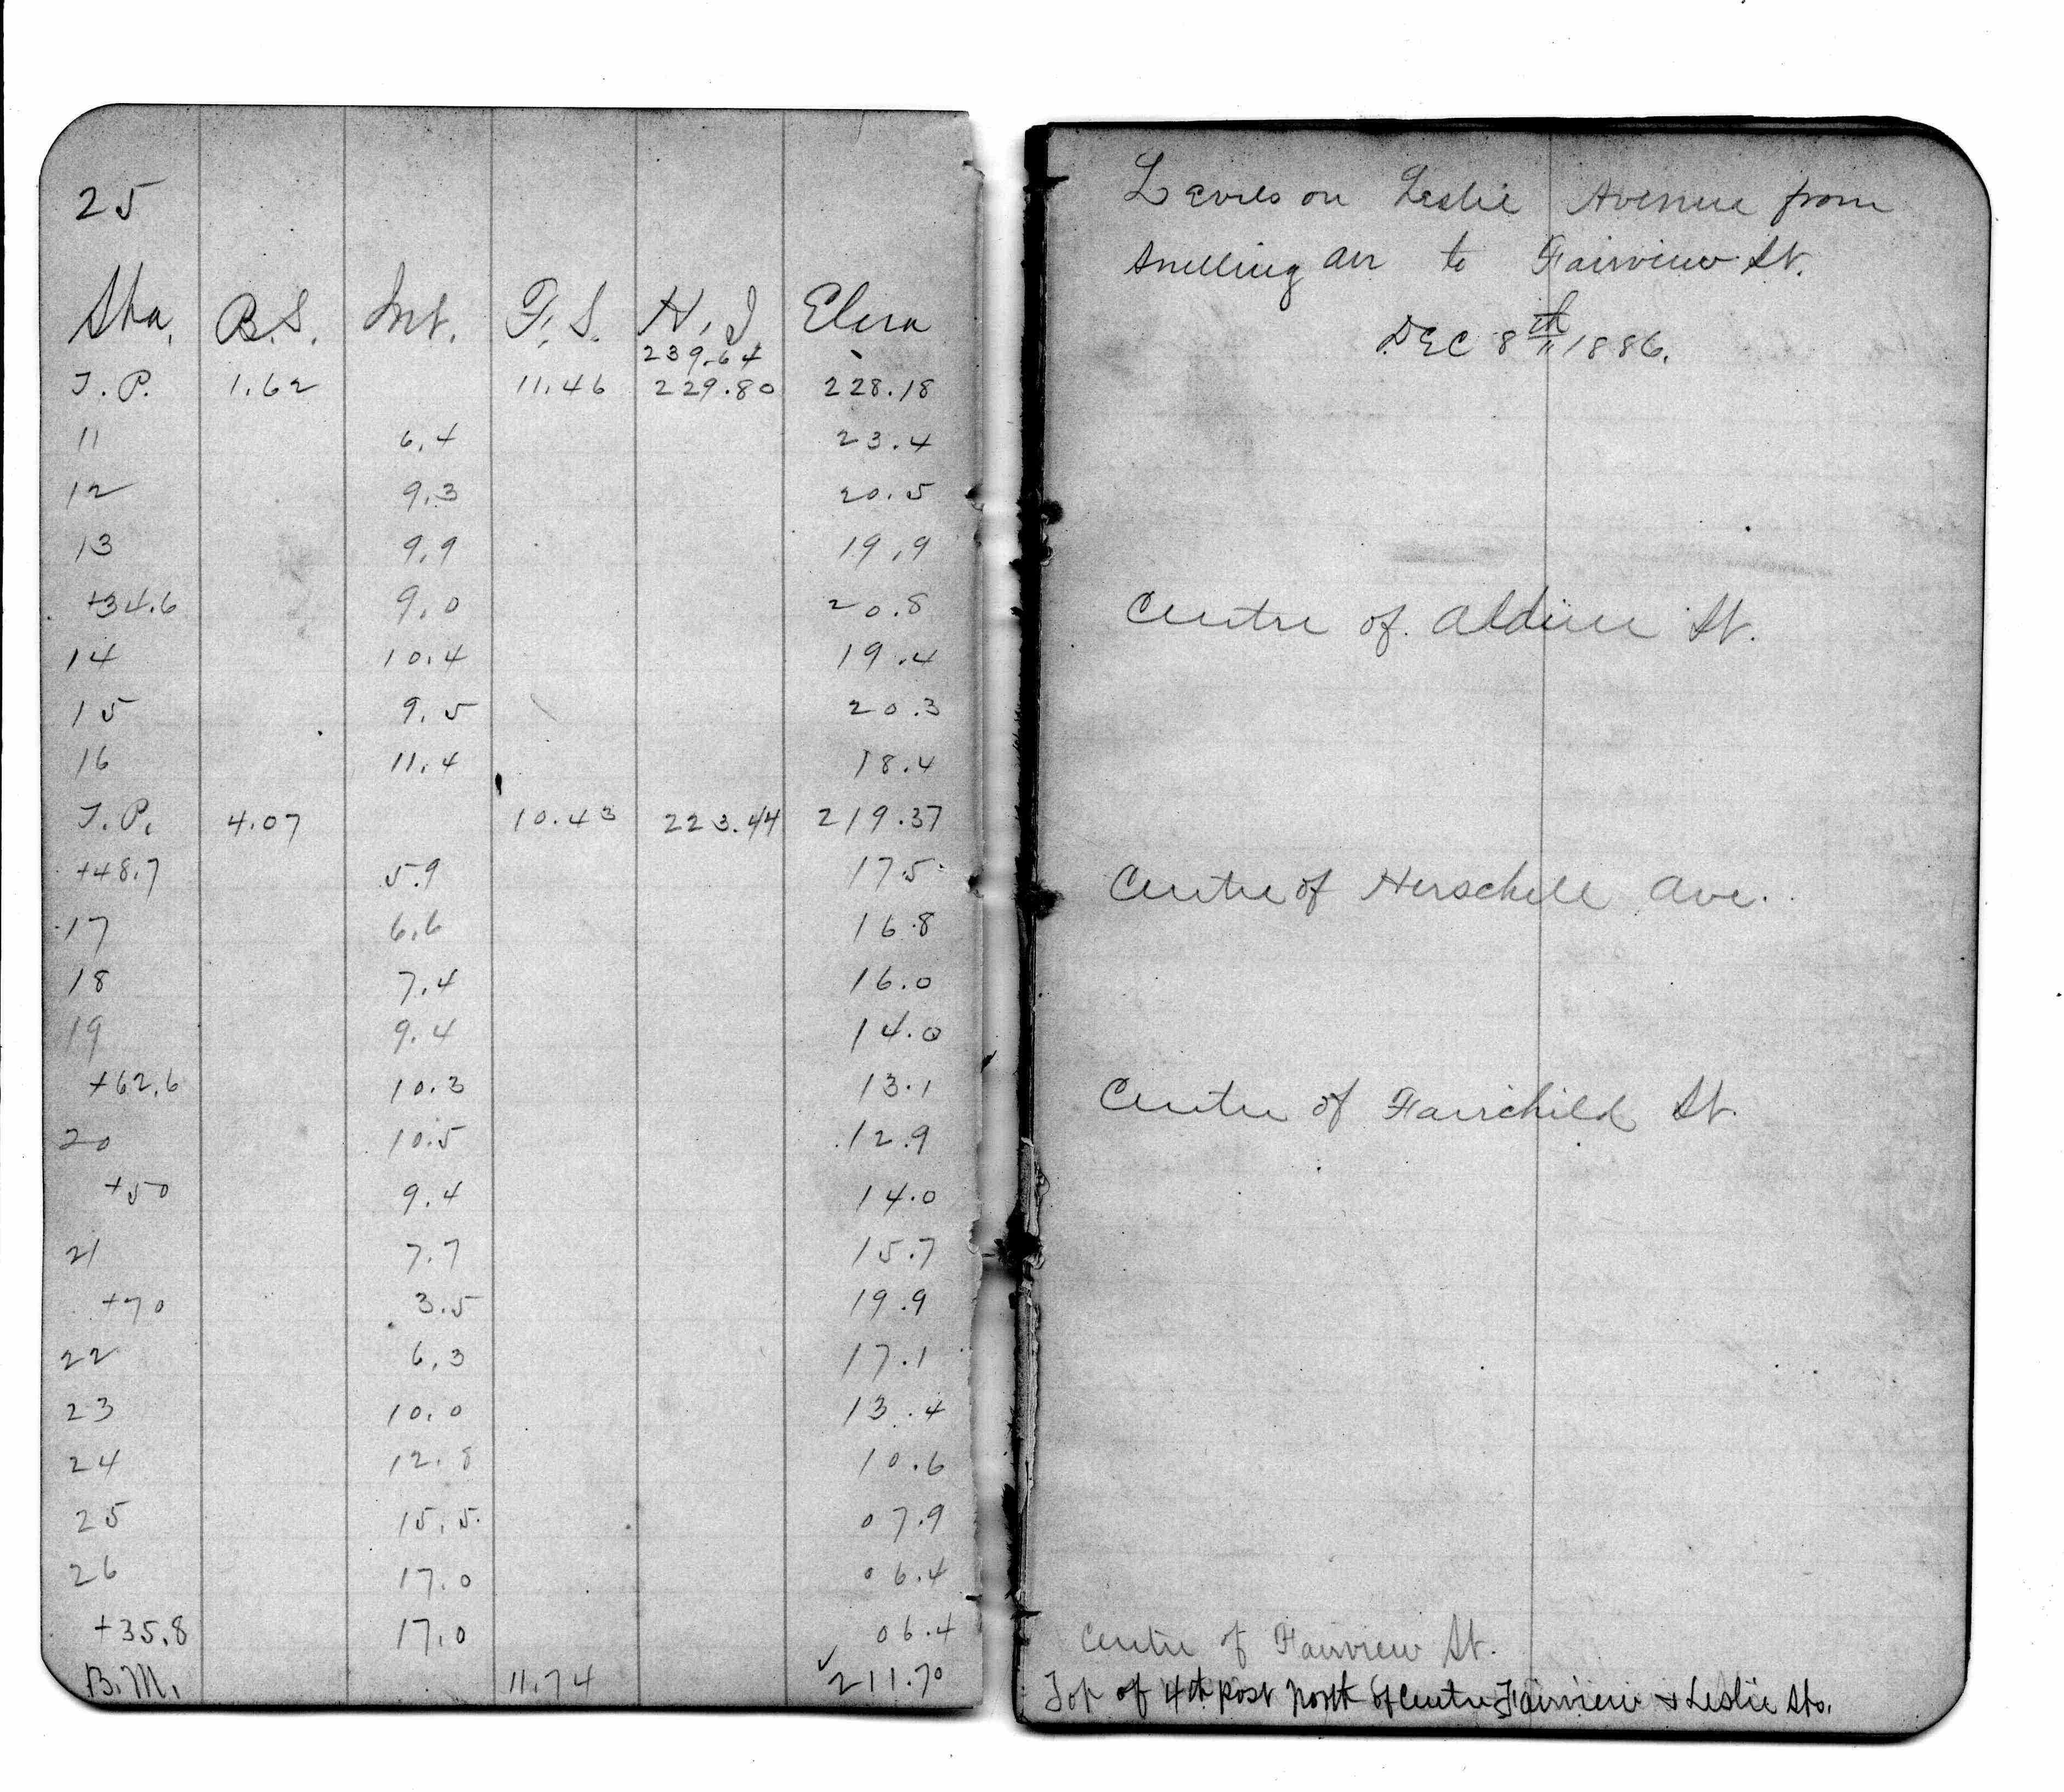 25
Sta. B.S. Int. F.S. H.I Elevn
239.64
T.P. 1.62 11.46 229.80 228.18
11 6.4 23.4
12 9.3 20.5
13 9.9 19.9
+34.6 9.0 20.8
14 10.4 19.4
15 9.5 20.3
16 11.4 18.4
T.P. 4.07 10.43 223.44 219.37
+48.7 5.9 17.5
17 6.6 16.8
18 7.4 16.0
19 9.4 14.0
+62.6 10.3 13.1
20 10.5 12.9
+50 9.4 14.0
21 7.7 15.7
+70 3.5 19.9
22 6.3 17.1
23 10.0 13.4
24 12.8 10.6
25 15.5 07.9
26 17.0 06.4
+35.8 17.0 06.4
B.M. 11.74 ✓211.70
Levels on Leslie Avenue from
Snelling Av to Fairview St.
DEC 8th 1886.
Centre of Aldine St.
Centre of Herschell Ave.
Centre of Fairchild St.
Centre of Fairview St.
Top of 4th post North of Centre Fairview & Leslie Sts.